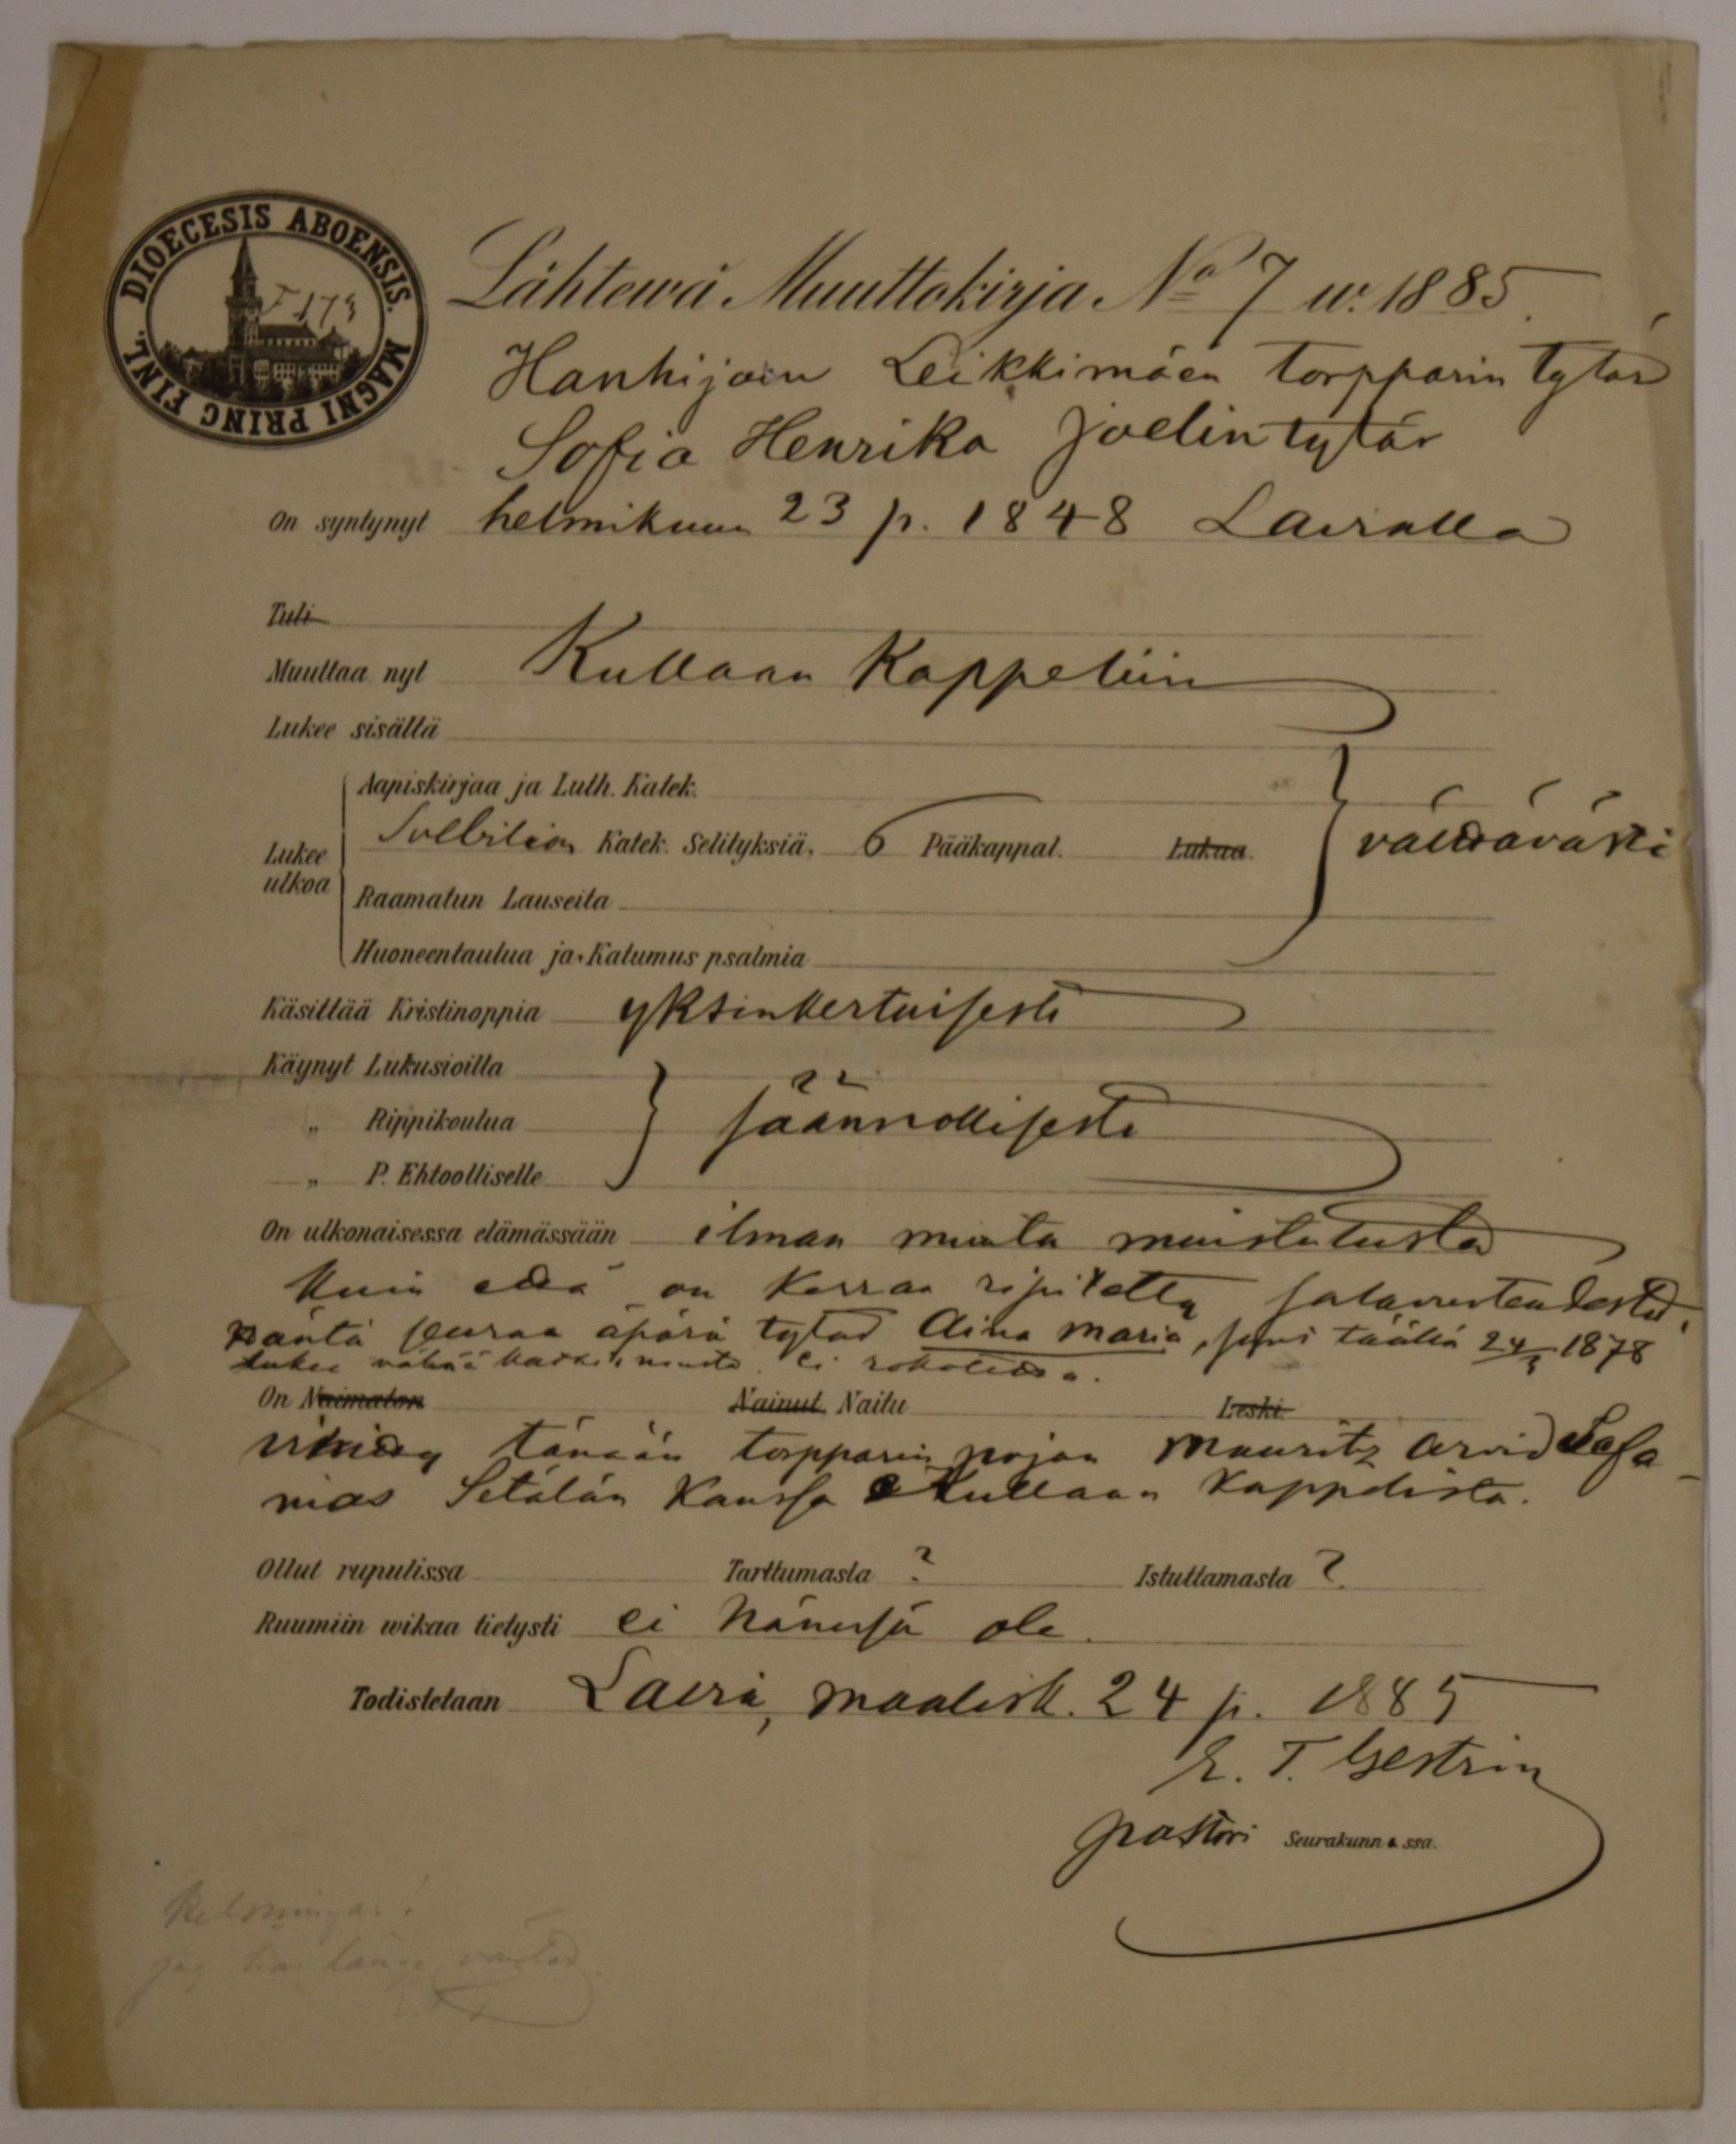 DIOECESIS ABOENSIS. MAGNI PRINC FINL.
I 173
Lähtewä Muuttokirja No 7 w. 1885.
Hanhijoen Leikkimäen torpparin tytär
Sofia Henrika Joelintytär
On syntynyt helmikuun 23 p. 1848 Lavialla
Tuli
Muuttaa nyt Kullaan Kappeliin
Lukee sisältä
Aapiskirjaa ja Luth. Katek.
Lukee ulkoa Svebilion Katek. Selityksiä, 6 Pääkappal. Lukua. välttävästi
Raamatun Lauseita
Huoneentaulua ja Katumus psalmia
Käsittää Kristinoppia yksinkertaisesti
Käynyt Lukusioilla
" Rippikoulua säännöllisesti
" P. Ehtoolliselle
On ulkonaisessa elämässään ilman muuta muistutusta
kuin että on kerran ripitetty salavuoteudesta,
Häntä seuraa äpärä tytär Aina Maria, synt täällä 24/3 1878
Lukee vähää ei rokotettu.
On Naimaton Nainut Naitu Leski
vihitty tänään torpparin pojan Mauritz Arvid Sefa-
nias Setälän kanssa Kullaan kappelista.
Ollut rupulissa Tarttumasta ? Istuttamasta ?
Ruumiin wikaa tietysti ei hänessä ole.
Todistetaan Lavia, maalisk. 24 p. 1885
E. T. Gestrin
pastori Seurakunnassa.
Helsningar!
jag har länge väntat